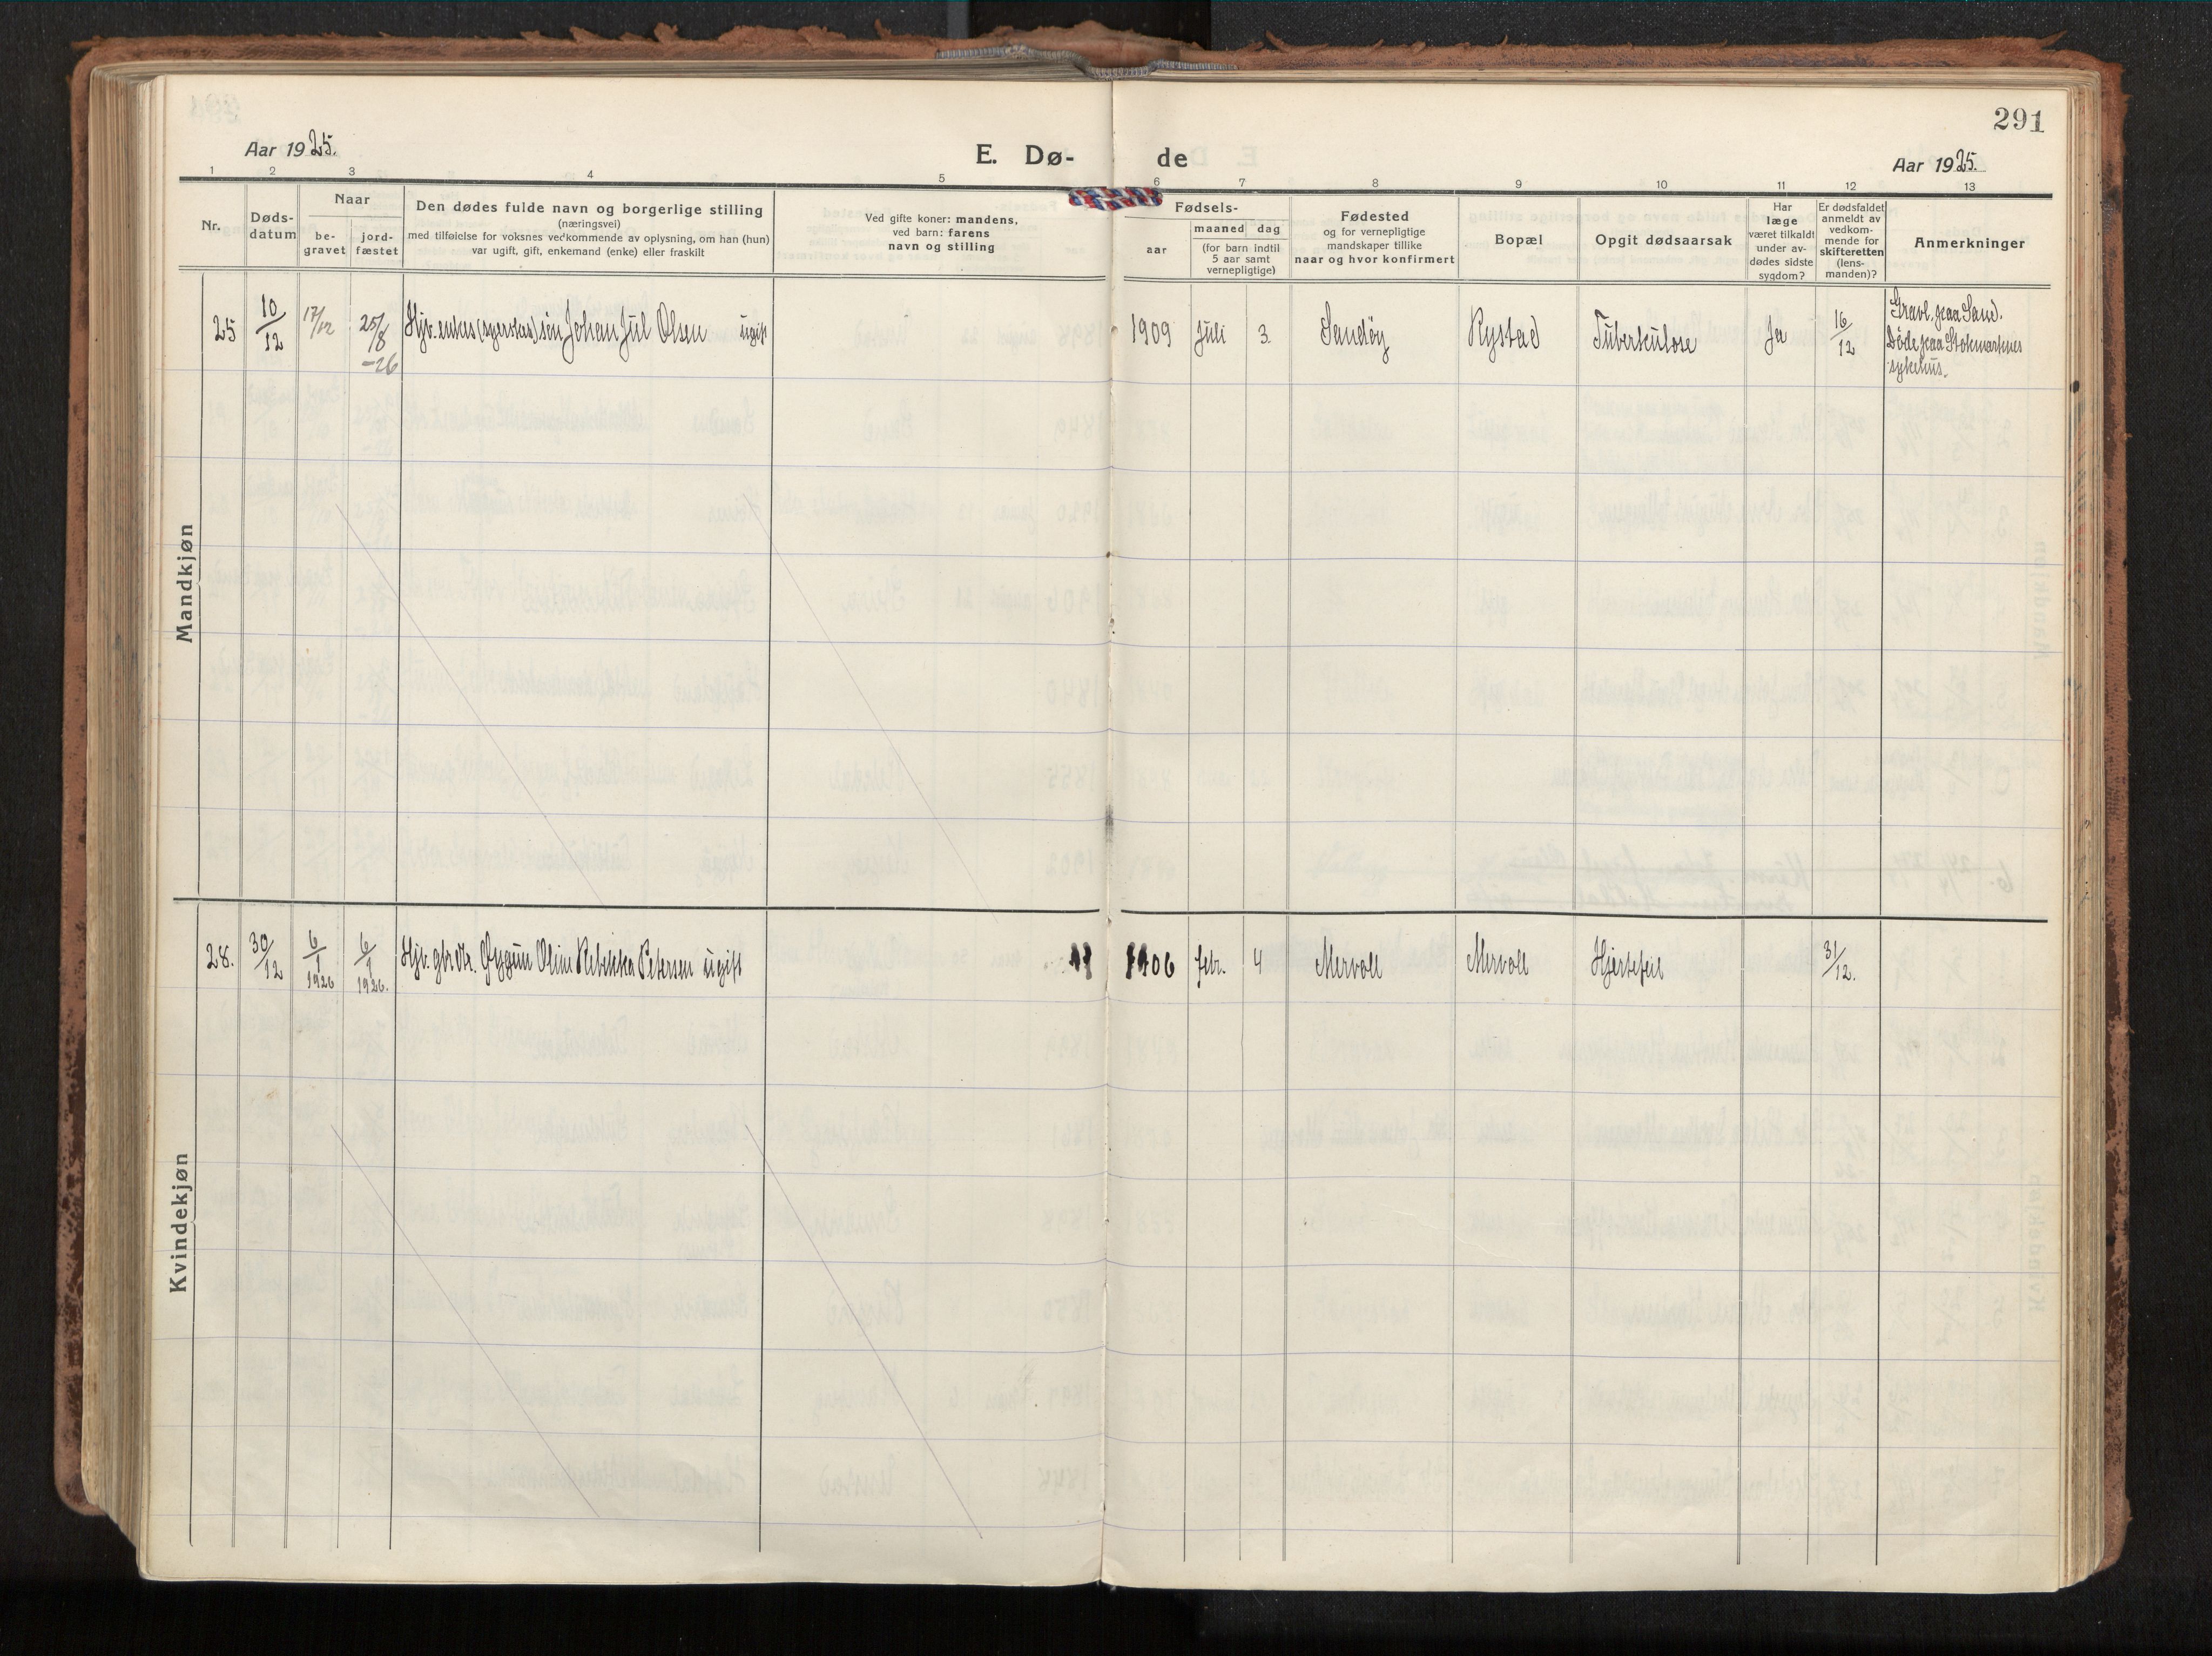 291
Aar 1925.
E. Dø-
de
Aar 1925.
1 2 3 4 5 6 7 8 9 10 11 12 13
Nr.
Døds-
datum
Naar
be-
gravet
jord-
fæstet
Den dødes fulde navn og borgerlige stilling
(næringsvei)
med tilføielse for voksnes vedkommende av oplysning, om han (hun)
var ugift, gift, enkemand (enke) eller fraskilt
Ved gifte koner: mandens,
ved barn: farens
navn og stilling
Fødsels-
aar
maaned dag
(for barn indtil
5 aar samt
vernepligtige)
Fødested
og for vernepligtige
mandskaper tillike
naar og hvor konfirmert
Bopæl
Opgit dødsaarsak
Har
læge
været tilkaldt
under av-
dødes sidste
sygdom?
Er dødsfaldet
anmeldt av
vedkom-
mende for
skifteretten
(lens-
manden)?
Anmerkninger
Mandkjøn
25 10/12 17/12 25/8 -26 Johan Jul Olsen ugift 1909 Juli 3. Sandøy Rystad Tuberkulose Ja 16/12
Gravl. paa Sand.
Døde paa Stokmarknes
sykehus.
Kvindekjøn
28. 30/12 6/1 1926 6/1 1926. Oline Rebekka Petersen ugift 1906 febr. 4 Mervoll Mervoll Hjertefeil 31/12.